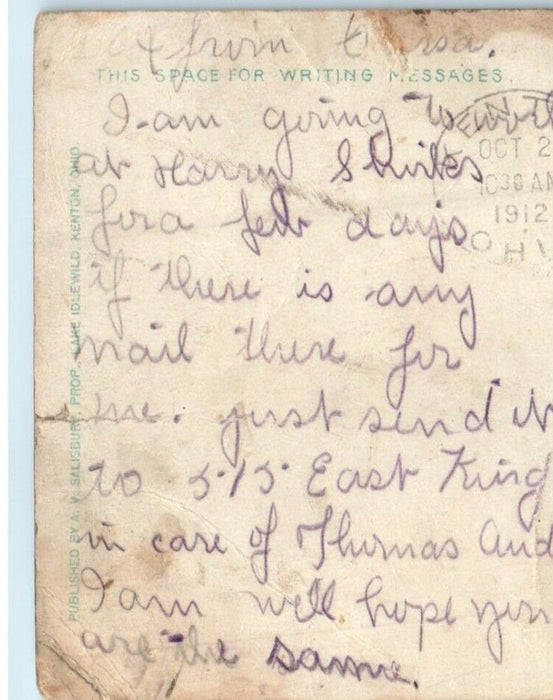 from
THIS SPACE FOR WRITING MESSAGES.
I am going to work
at Harry Shirks
for a few days
if there is any
mail there for
me. just send it
to 515 East King
in care of Thomas And
I am well hope your
are the same.
OCT 2
1030 AM
1912
OHI
PUBLISHED BY A. V. SALISBURY, PROP., LAKE IDLEWILD KENTON, OHIO.